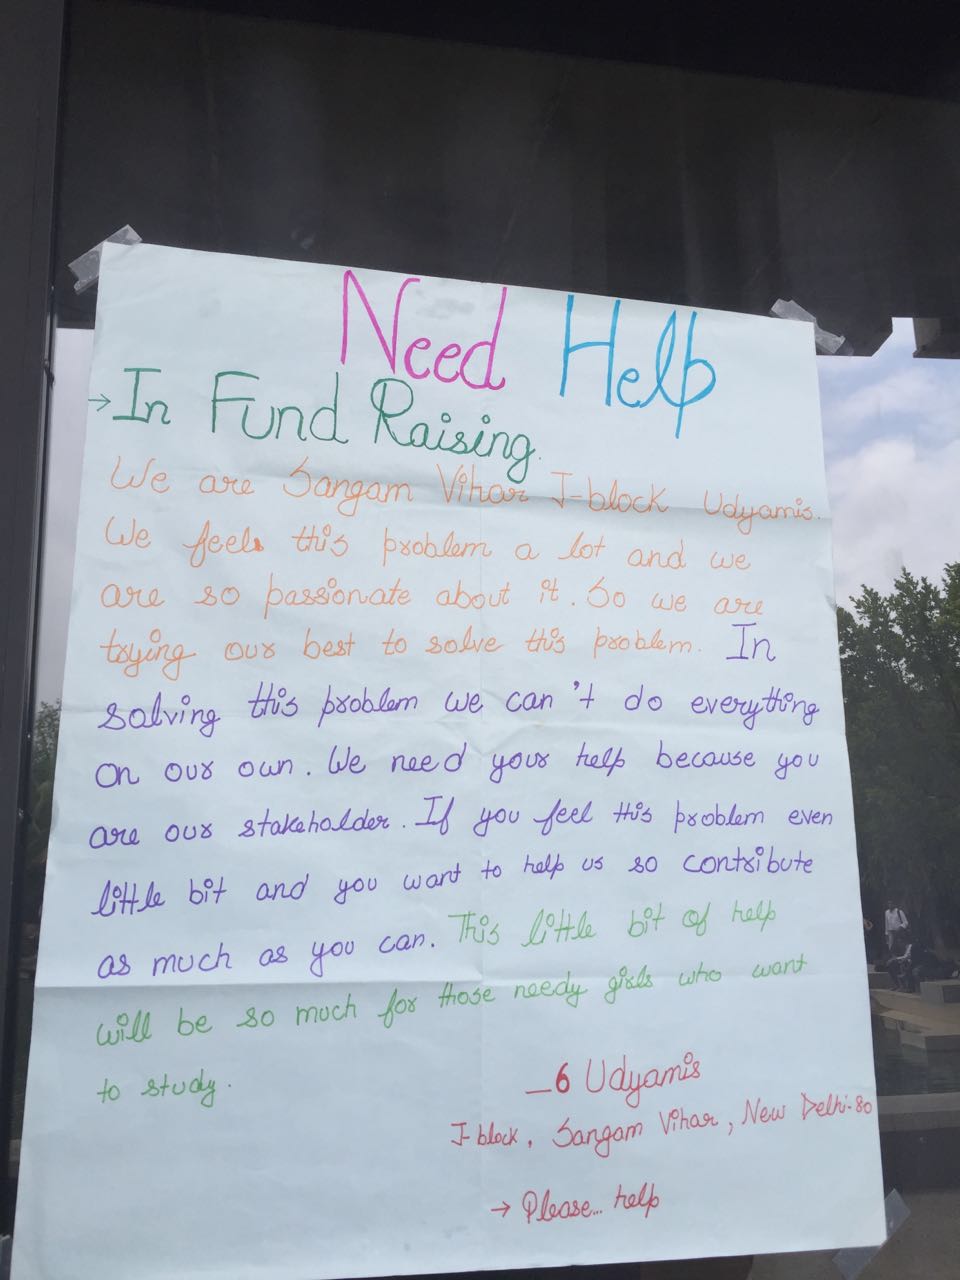 Need Help
→ In Fund Raising.
We are Sangam Vihar J-block Udyamis.
We feels this problem a lot and we
are so passionate about it. So we are
trying our best to solve this problem. In
solving this problem we can't do everything
on our own. We need your help because you
are our stakeholder. If you feel this problem even
little bit and you want to help us so contribute
as much as you can. This little bit of help
will be so much for those needy girls who want
to study.
_6 Udyamis
J-block, Sangam Vihar, New Delhi-80
→ Please... help